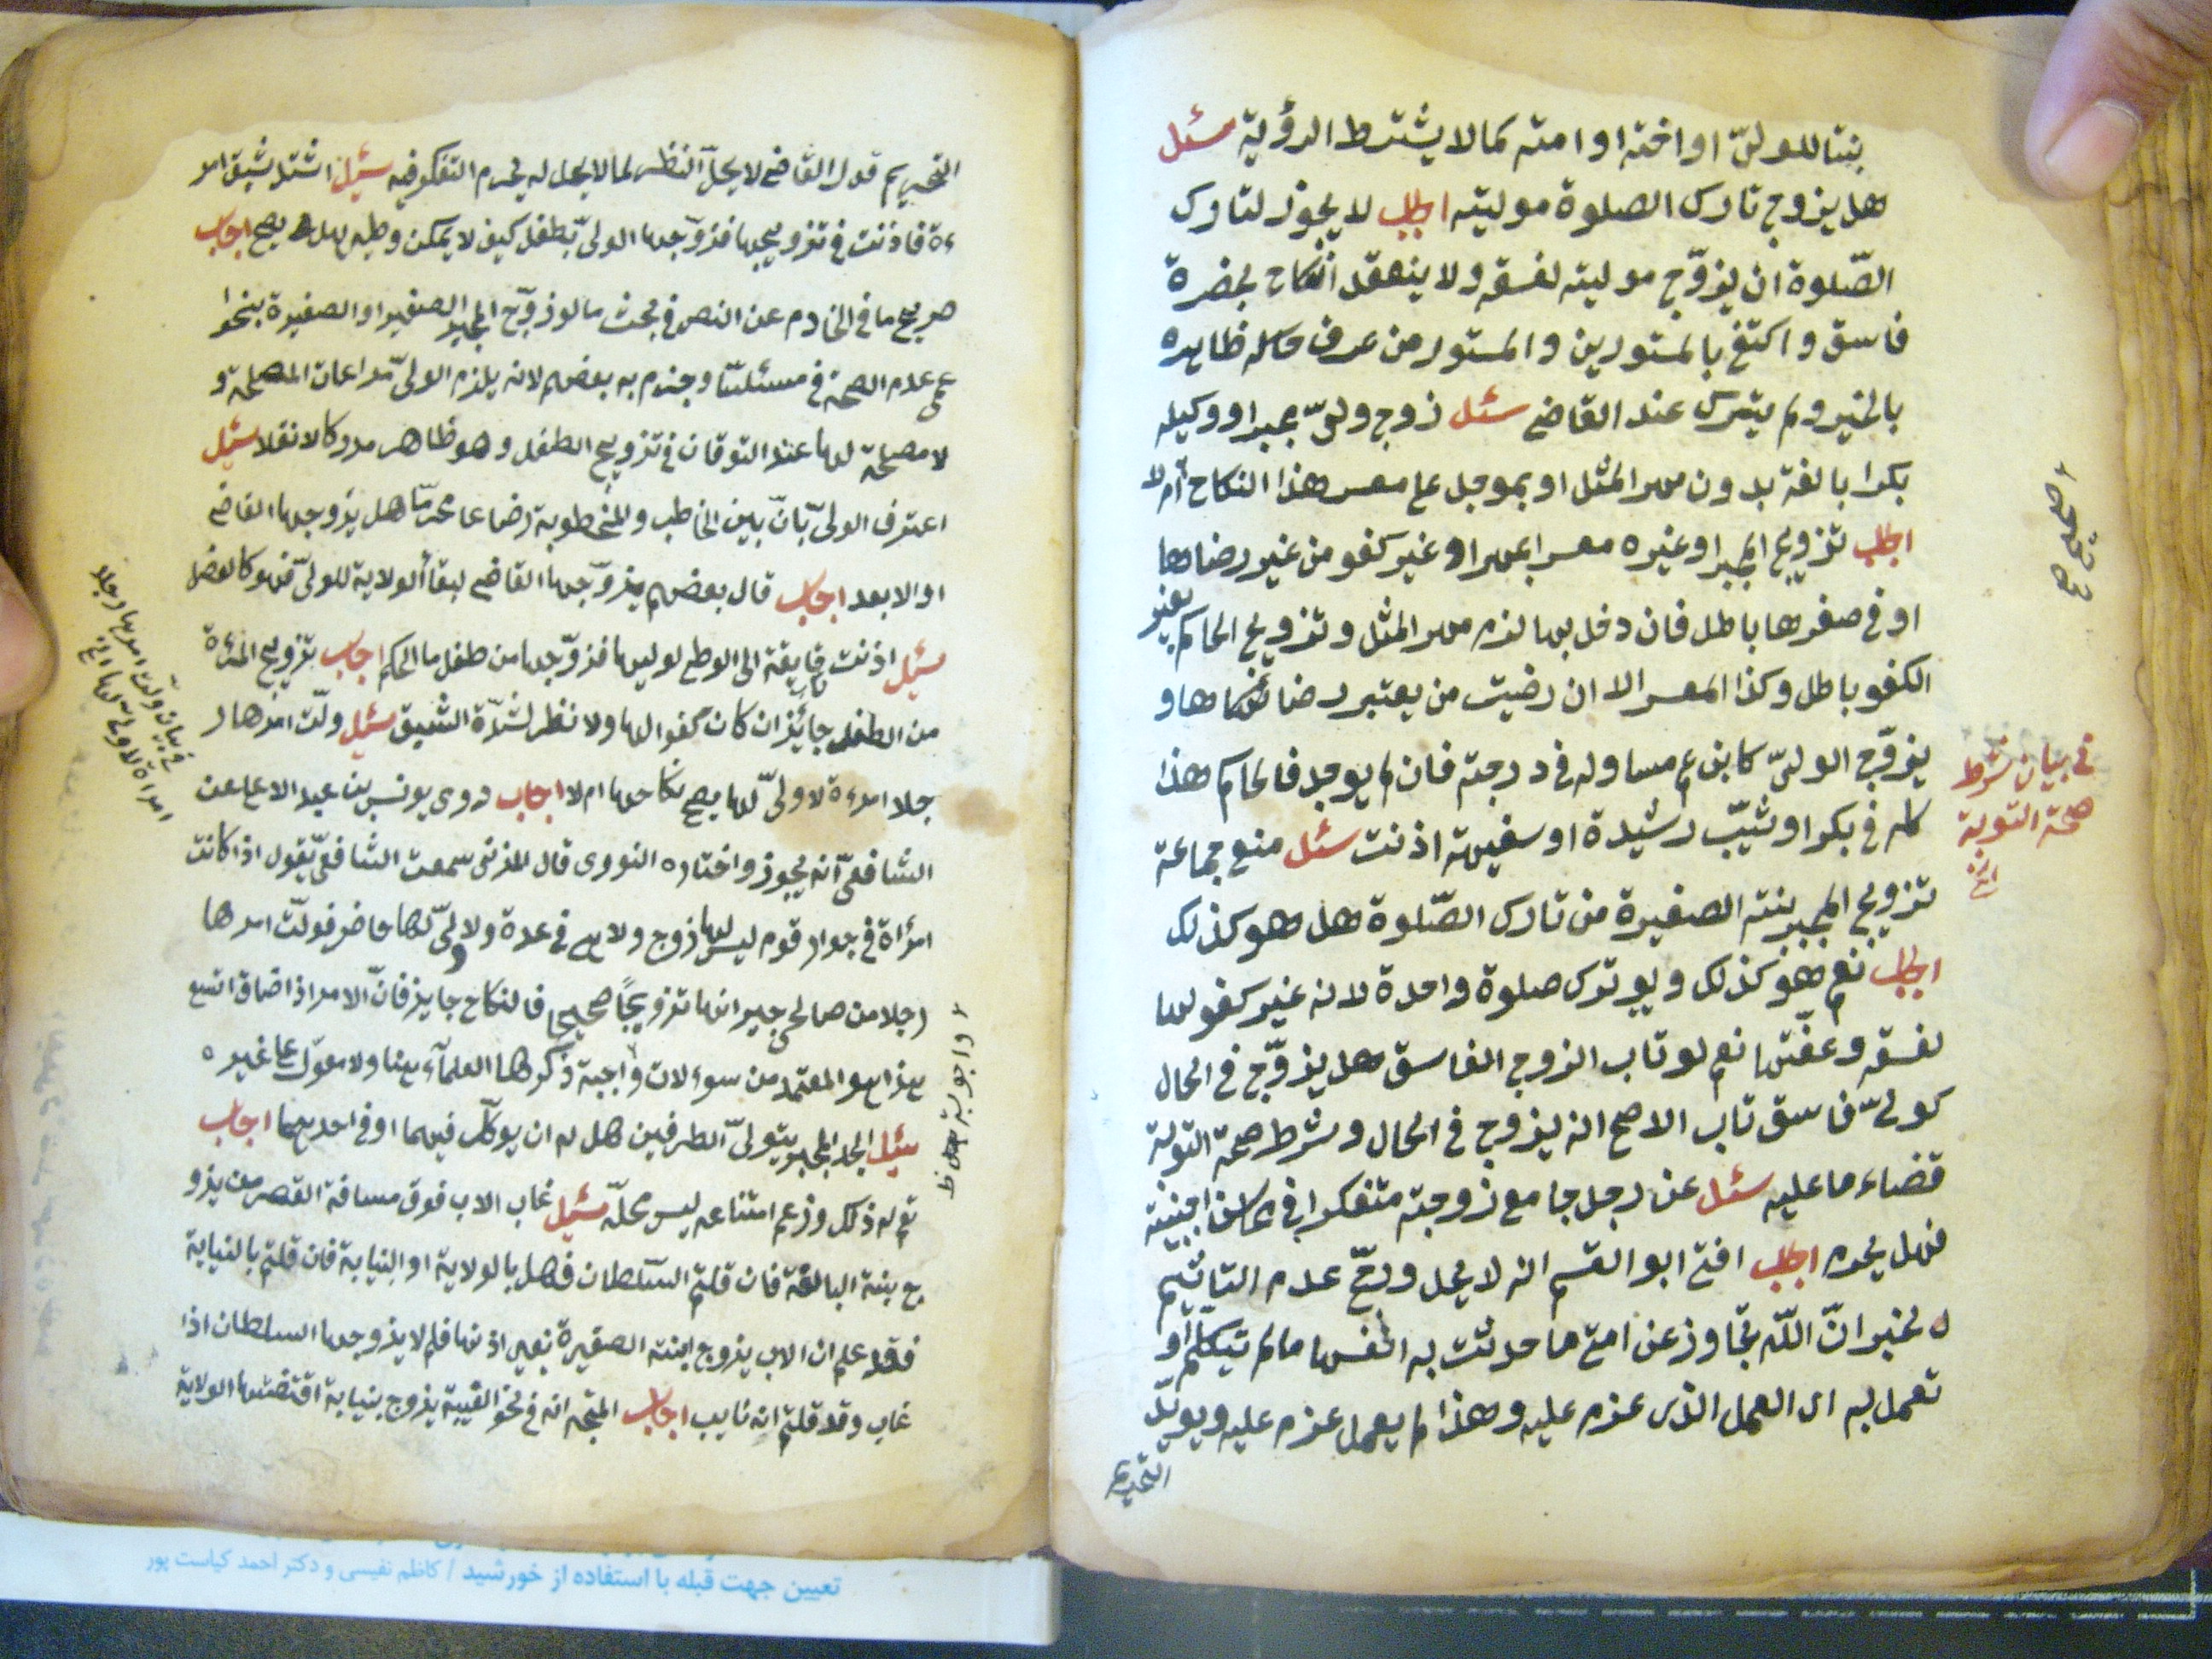 بنتا للولىّ او اختہ او امتہ كما لا يشترط الرؤية سئل
هل يزوج تارك الصلوة موليته اجاب لا يجوز لتارك
الصّلوة ان يزوّج موليته لفسقه ولا ينعقد النكاح بحضرة
فاسق واكتفى بالمستورين والمستور من عرف حاله ظاهره
بالخير ولم يترك عند القاضى سئل زوج ولىّ مجبر او وكيله
بكرا بالغة بدون مهر المثل او بموجل على معسر هذا النكاح ام لا
اجاب تزويج المجبر او غيره معسرا بمهر او غير كفو من غير رضاها
او فى صغرها باطل فان دخل بها لزم مهر المثل وتزويج الحاكم بغير
الكفو باطل وكذا المعسر الا ان رضيت من يعتبر رضا نكاحها و
يزوّج الولىّ كابن عم مساو له فى درجته فان لم يوجد فالحاكم هذا
كله فى بكر او ثيّب رشيدة او سفيهة اذنت سئل منع جماعة
تزويج المجبر بنته الصغيرة من تارك الصّلوة هل هو كذلك
اجاب نعم هو كذلك ولو ترك صلوة واحدة لانه غير كفو لها
لفسقه وعفّتها نعم لو تاب الزوج الفاسق هل يزوّج فى الحال
كولىّ فاسق تاب الاصح انه يزوج فى الحال وشرط صحة التوبة
قضاء ما عليه سئل عن رجل جامع زوجته متفكرا فى محاسن اجنبية
فهل يحرم اجاب افتى ابو القسم انه لا يحل ورجّح عدم التاثيم
لخبر انّ اللّه تجاوز عن امتى ما حدثت به انفسها ما لم تتكلم او
تعمل به اى العمل الذى عزم عليه وهذا لم يعمل عزم عليه ويويّد
التحريم
صحيح صح
فى بيان شرط
صحة التوبة
الخ
التحريم قول القاضى لا يحلّ النظر لما لا يحل له يحرم التفكر فيه سئيل اشتدّ شبق امر
ءة فاذنت فى تزويجها فزوّجها الولىّ بطفل كيف لا يمكن وطيه هل يصح اجاب
صريح ما فى الخادم عن النص فى بحث ما لو زوّج المجبر الصغير او الصغيرة بنحو
عمى عدم الصحة فى مسئلتنا وجزم به بعضهم لانه يلزم الولىّ مراعات المصلحة و
لا مصلحة لها عند التوقان فى تزويج الطفل وهو ظاهر مدركا لا نقلا سئيل
اعترف الولىّ بانّ بين الخاطب والمخطوبة رضاعا محرّما هل يزوجها القاضى
او الابعد اجاب قال بعضهم يزوّجها القاضى لبقأ الولاية للولىّ فهو كالعضل
سئيل اذنت تايقة الى الوطى لوليها فزوّجها من طفل ما الحكم اجاب تزويج المرءة
من الطفل جايز ان كان كفوا لها ولا نظر لشدّة الشبق سئيل ولّت امرها ر
جلا امرءة لا ولىّ لها يصح نكاحها ام لا اجاب روى يونس بن عبد الاعلى عن
الشافعىّ انه يجوز واختاره النووى قال المزنى سمعت الشافعىّ يقول اذا كانت
امرأة فى جوار قوم ليس لها زوج ولا هى فى عدة ولا ولىّ لها حاضر فولّت امرها
رجلا من صالحى جيرانها تزويجًا صحيحا فالنكاح جايز فانّ الامر اذا ضاق اتسع
هذا هو المعتمد من سوءلات واجبة ذكرها العلمآء هنا ولا معوّل على غيره
سئيل الجد المجبر يتولىّ الطرفين هل له ان يوكّل فيهما او فى احديهما اجاب
نعم له ذلك وزعم امتناعه ليس محلّه سئيل غاب الاب فوق مسافة القصر من يزو
ج بنته البالغة فان قلتم السّلطان فهل بالولاية او النيابة فان قلتم بالنيابة
فقد علم ان الاب يزوج ابنته الصغيرة بغير اذنها فلم لا يزوجها السلطان اذا
غاب وقد قلتم انه نايب اجاب المتجه انه فى نحو الغيبة يزوج بنيابة اقتضتها الولاية
فى بيان ولّت امرها رجلا
امراة لا ولىّ لها الخ
واجوبة ظ
تعیین جهت قبله با استفاده از خورشید / کاظم نفیسی و دکتر احمد کیاست پور